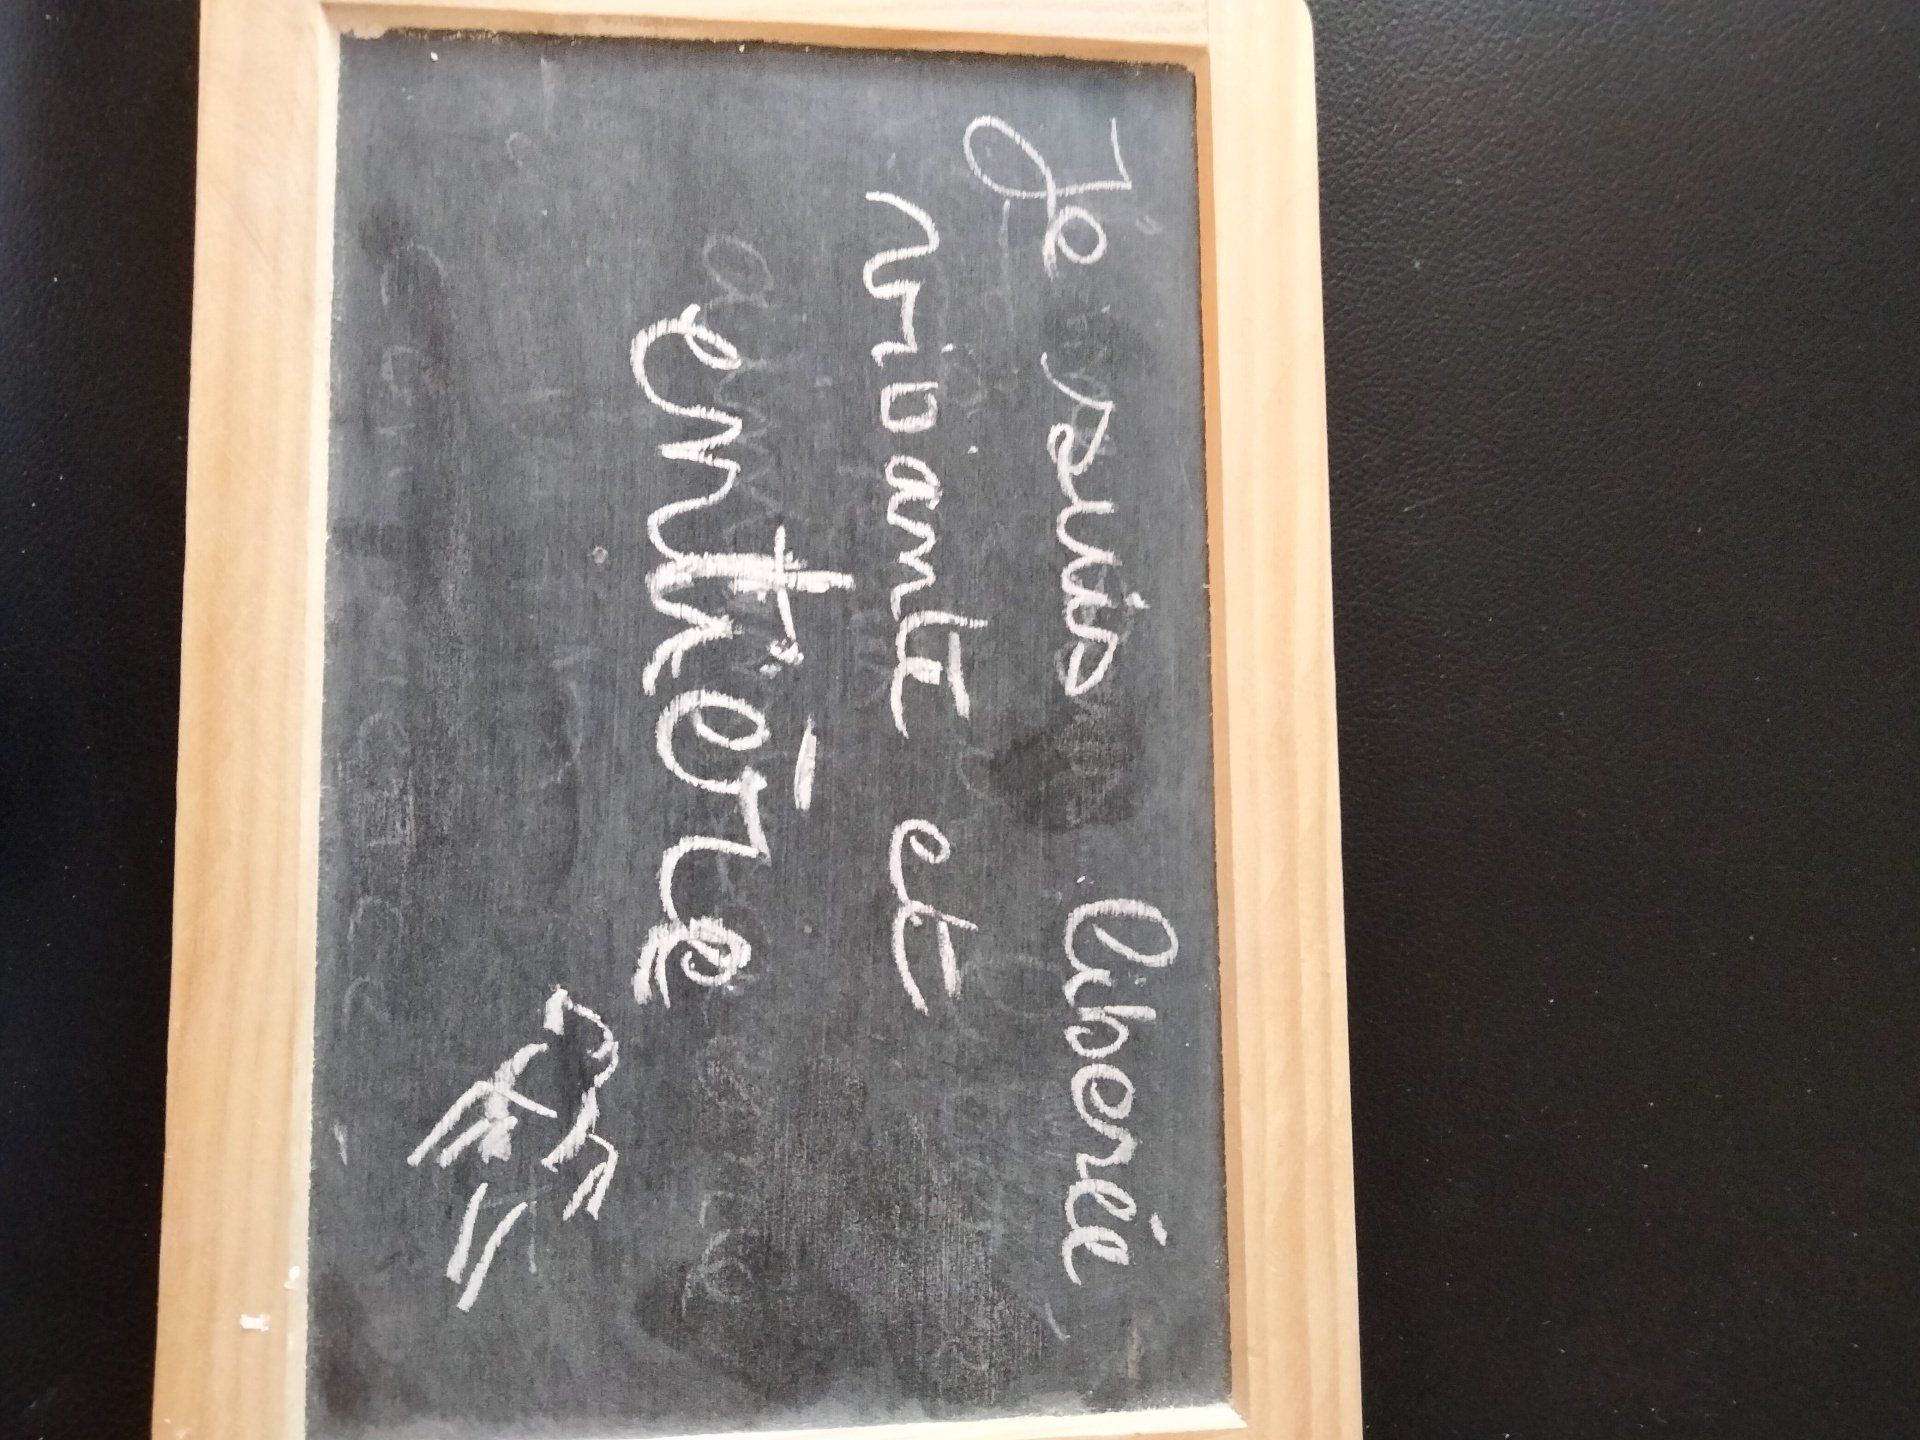 Je suis liberée
vibrante et
entière